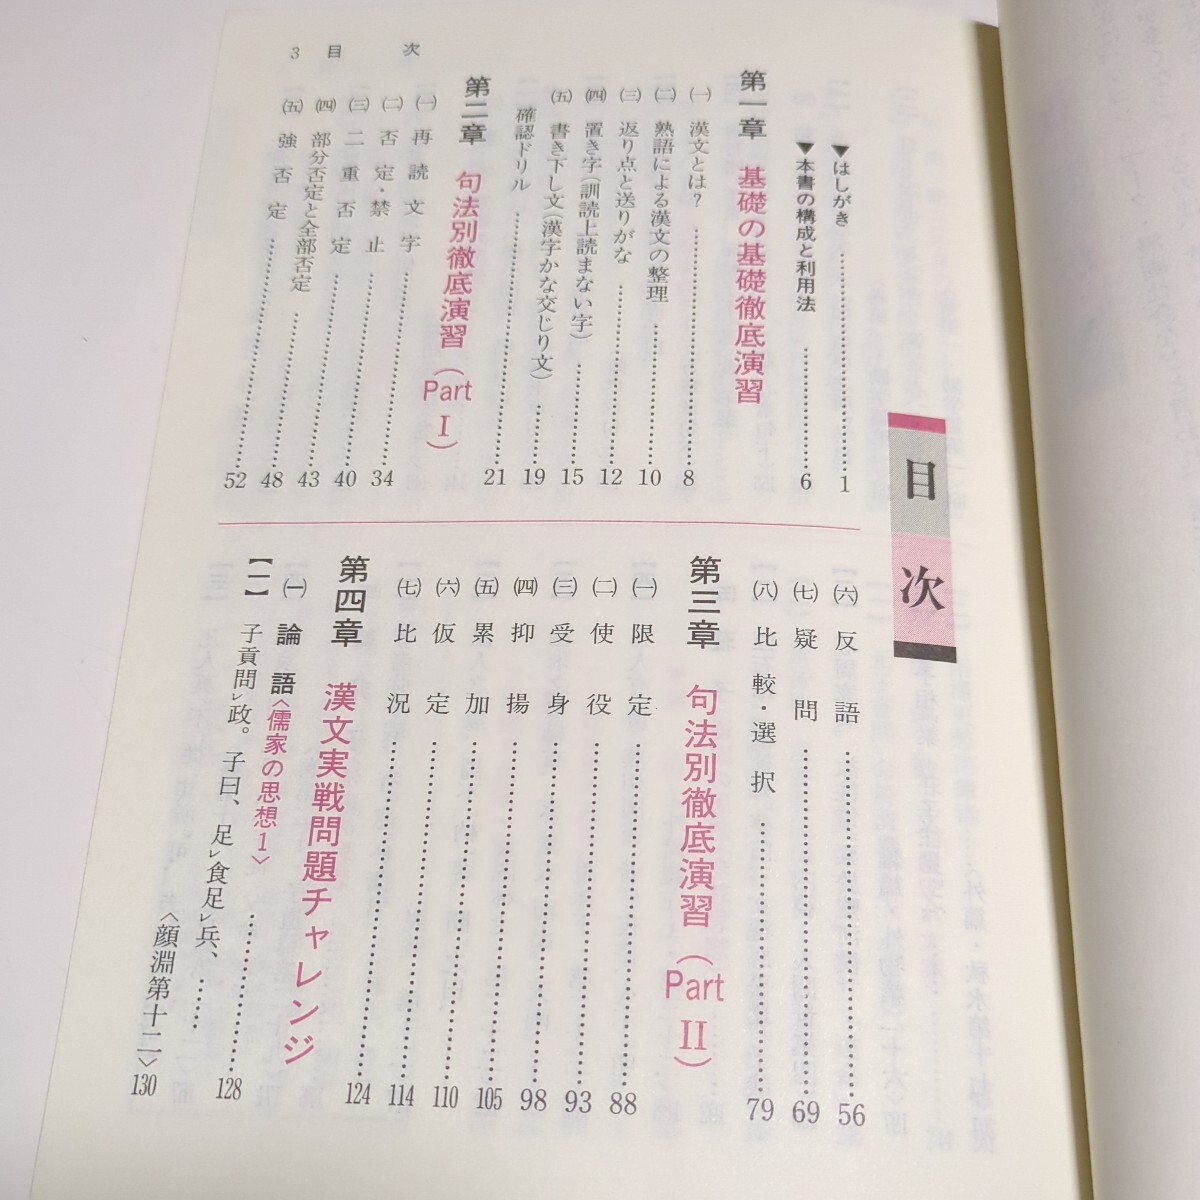 3 目 次
目次
▼はしがき……1
▼本書の構成と利用法……6
第一章 基礎の基礎徹底演習
㈠ 漢文とは？……8
㈡ 熟語による漢文の整理……10
㈢ 返り点と送りがな……12
㈣ 置き字（訓読上読まない字）……15
㈤ 書き下し文（漢字かな交じり文）……19
確認ドリル……21
第二章 句法別徹底演習（Part Ⅰ）
㈠ 再読文字……34
㈡ 否定・禁止……40
㈢ 二重否定……43
㈣ 部分否定と全部否定……48
㈤ 強否定……52
㈥ 反語……56
㈦ 疑問……69
㈧ 比較・選択……79
第三章 句法別徹底演習（Part Ⅱ）
㈠ 限定……88
㈡ 使役……93
㈢ 受身……98
㈣ 抑揚……105
㈤ 累加……110
㈥ 仮定……114
㈦ 比況……124
第四章 漢文実戦問題チャレンジ
㈠ 論語〈儒家の思想1〉……128
【一】 子貢問レ政。子曰、足レ食足レ兵、……
〈顔淵第十二〉130